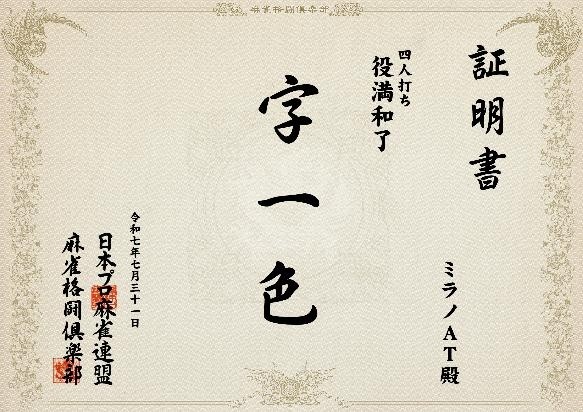 麻雀格闘倶楽部
証明書
ミラノAT殿
四人打ち
役満和了
字一色
令和七年七月三十一日
日本プロ麻雀連盟
麻雀格闘倶楽部